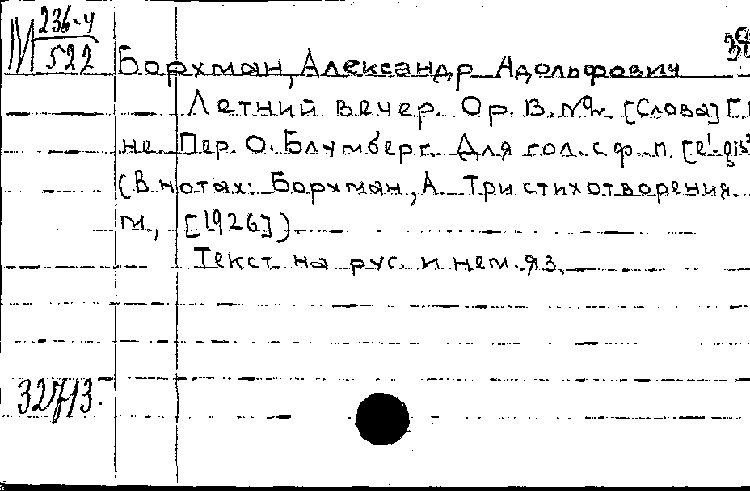 М 236-4
522
Борхман, Александр Адольфович
Летний вечер. Ор. 13. №2. [Слова]
не. Пер. О. Блумберг. Для гол. с ф-п.
(В нотах: Борхман, А. Три стихотворения.
М., [1926])
Текст на рус. и нем. яз.
32713.